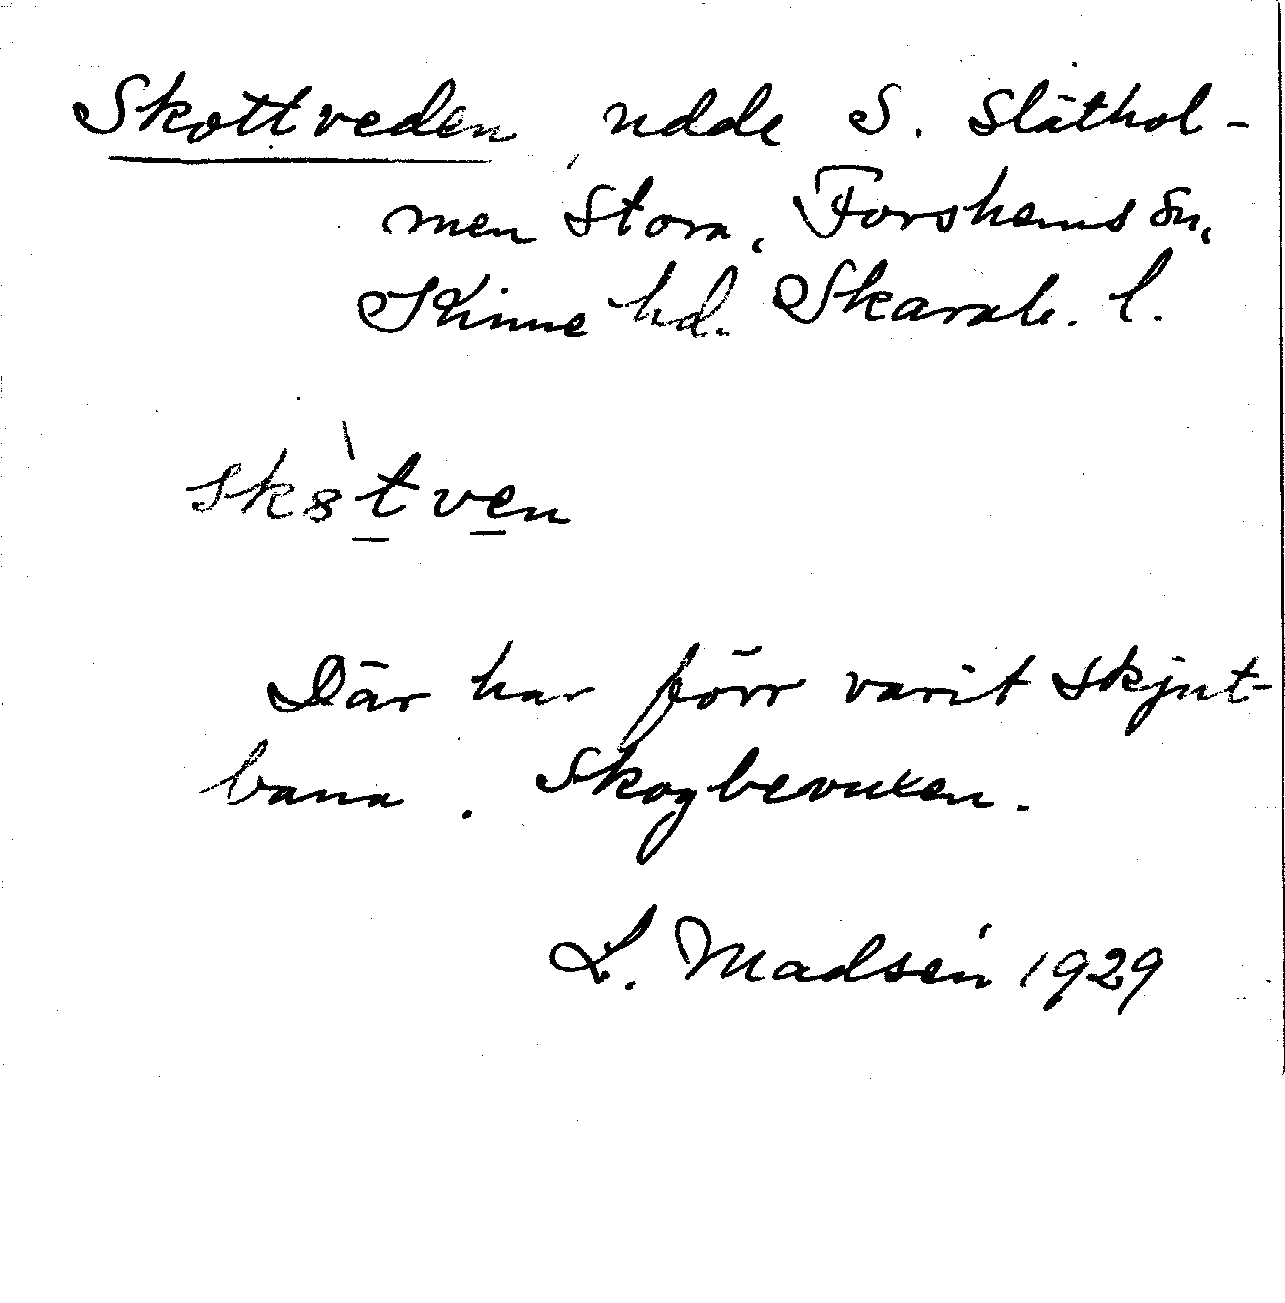 Skottveden, udde S. Släthol-
men Stora, Forshems sn,
Kinne hd. Skarab. l.
skȣ̀t̲ve̲n
Där har förr varit skjut-
bana. Skogbevuxen.
L. Madsén 1929